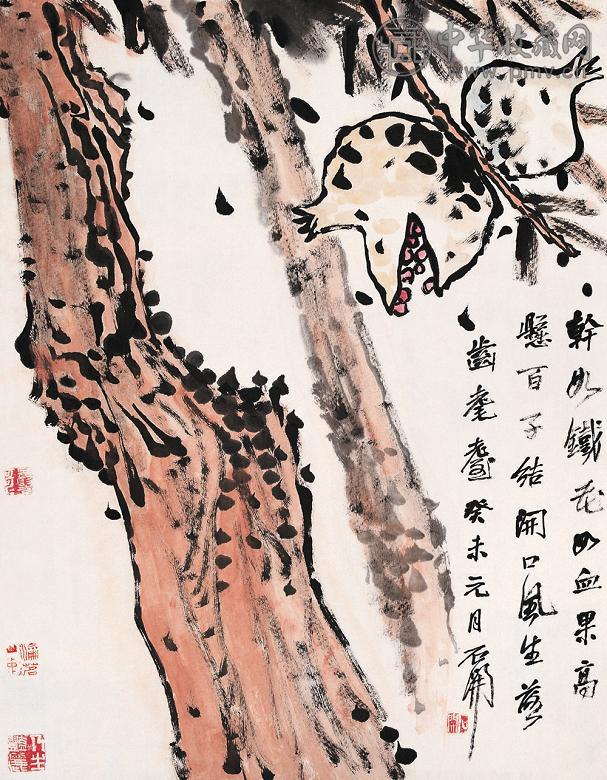 中华收藏网
www.pmv.cn
幹如鐵花如血果高
懸百子結開口風生落
齒耄耋癸未元月石開